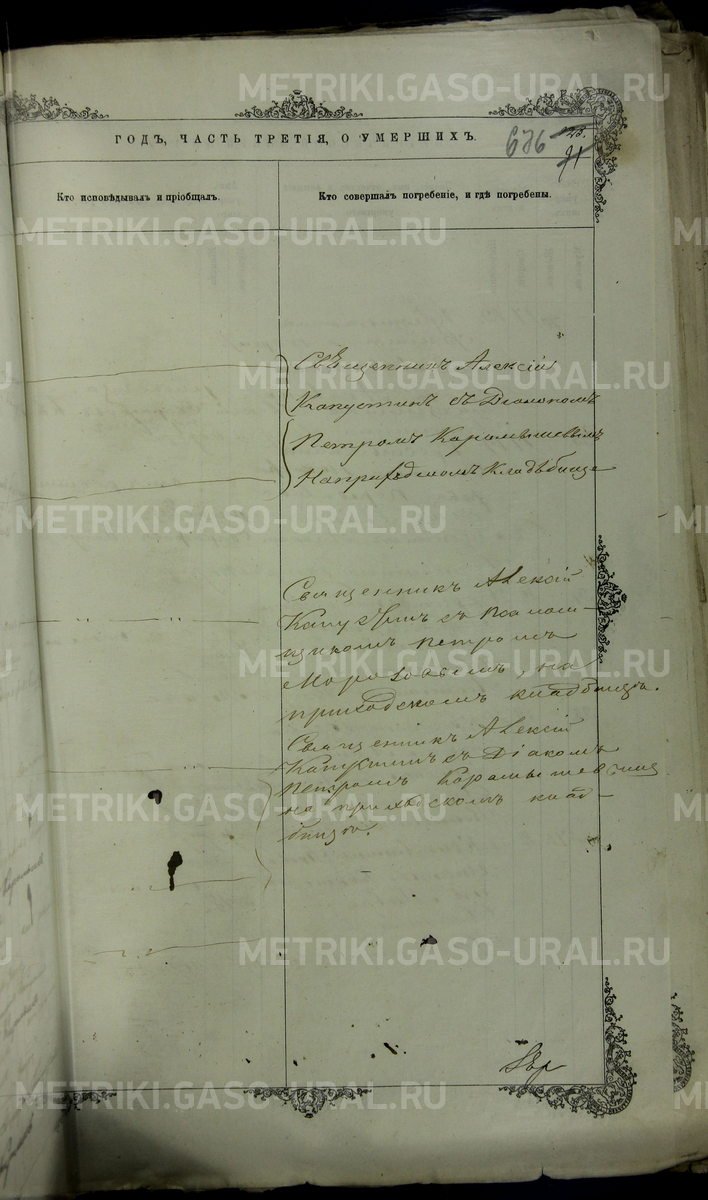 METRIKI.GASO-URAL.RU
ГОДЪ, ЧАСТЬ ТРЕТІЯ, О УМЕРШИХЪ.
686
91
Кто исповѣдывалъ и пріобщалъ.
Кто совершалъ погребеніе, и гдѣ погребены.
Священникъ Алексій
Капустинъ съ Діакономъ
Петромъ Карамышевымъ
На приходскомъ Кладбище
Священникъ Алексій
Капустинъ съ Псалом-
щикомъ Петромъ
Морозовымъ, на
приходскомъ кладбищѣ.
Священникъ Алексій
Капустинъ съ Діакомъ
Петромъ Карамышевымъ
на приходскомъ клад-
бищѣ.